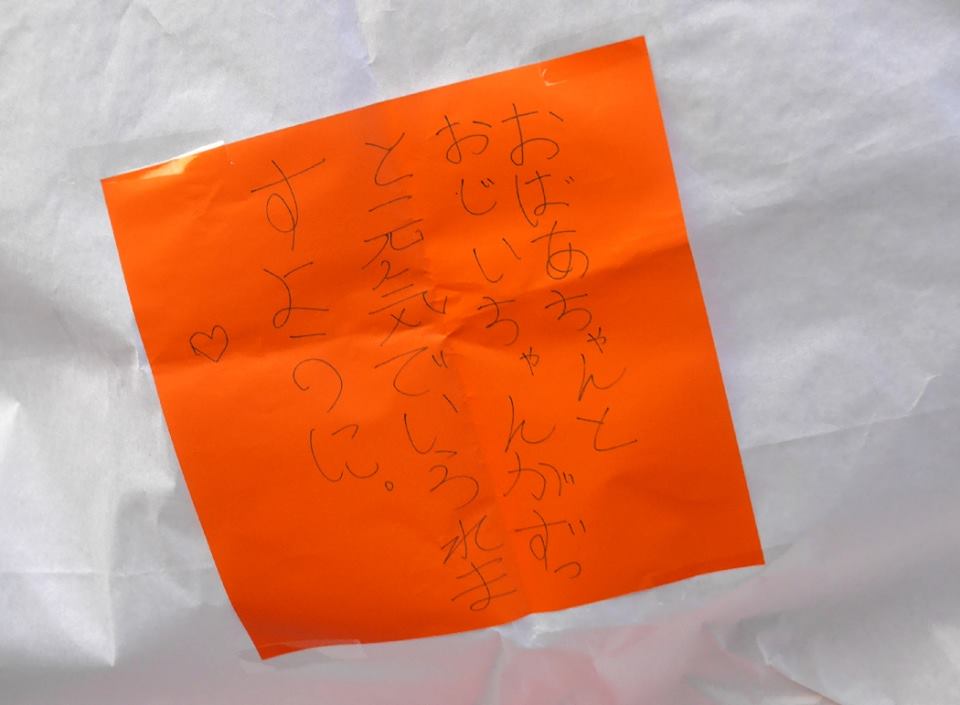 おばあちゃんと
おじいちゃんがずっ
と元気でいられま
すように。
♡